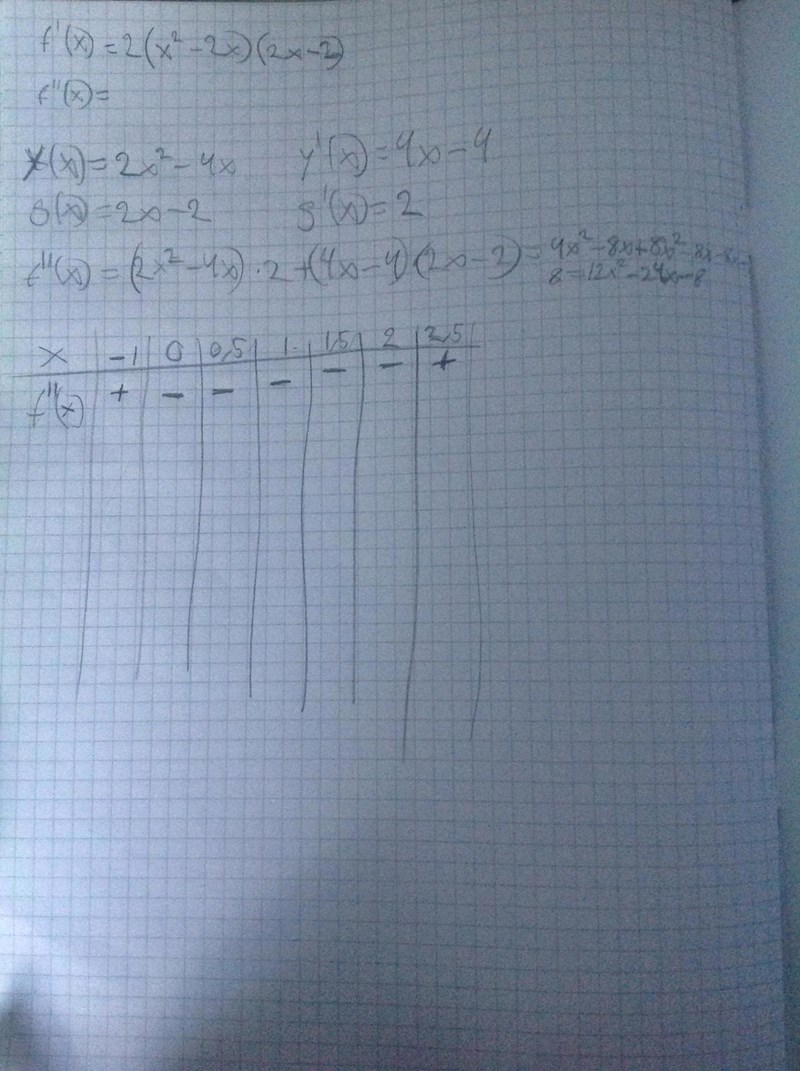 f'(x) = 2(x² - 2x)(2x - 2)
f''(x) =
(x) = 2x² - 4x y'(x) = 4x - 4
g(x) = 2x - 2 g'(x) = 2
f''(x) = (2x² - 4x) · 2 + (4x - 4)(2x - 2) = 4x² - 8x + 8x² - 8x - 8x -
8 = 12x² - 24x - 8
x -1 0 0,5 1 1,5 2 2,5
f''(x) + - - - - - +